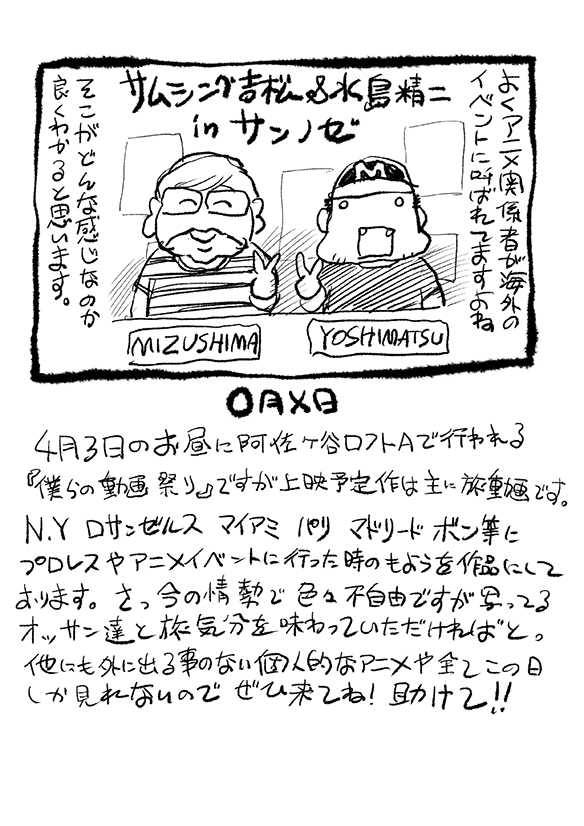 よくアニメ関係者が海外の
イベントに呼ばれてますよね
サムシング吉松&水島精二
in サンノゼ
そこがどんな感じなのか
良くわかると思います。
M
MIZUSHIMA
YOSHIMATSU
〇月×日
4月3日のお昼に阿佐ヶ谷ロフトAで行われる
『僕らの動画祭り』ですが上映予定作は主に旅動画です。
N.Y ロサンゼルス マイアミ パリ マドリード ボン等に
プロレスやアニメイベントに行った時のもようを作品にして
おります。さっ今の情勢で色々不自由ですが写ってる
オッサン達と旅気分を味わっていただければと。
他にも外に出る事のない個人的なアニメや全てこの日
しか見れないので ぜひ来てね! 助けて!!